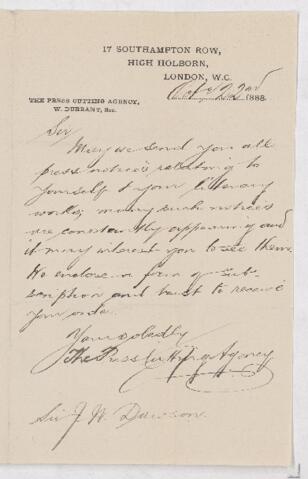 17 SOUTHAMPTON ROW,
HIGH HOLBORN,
LONDON, W.C.
22nd 1888.
THE PRESS CUTTING AGENCY,
W. DURRANT, Sec.
Sir
May we send you all
press notices relating to
yourself & your literary
works; many such notices
are constantly appearing and
it may interest you to see them.
We enclose a form of sub-
scription and trust to receive
your order.
Yours obediently
The Press Cutting Agency
Sir J. W. Dawson.